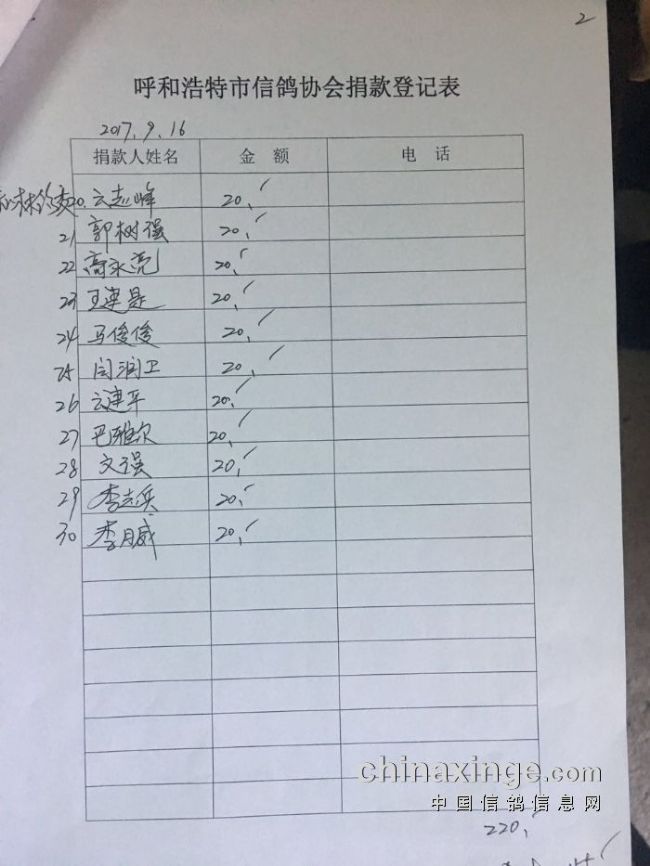 2
呼和浩特市信鸽协会捐款登记表
2017.9.16
捐款人姓名 金 额 电 话
云志峰 20,
21 郭树强 20,
22 高永亮 20,
23 王建是 20,
24 马俊俊 20,
25 闫润卫 20,
26 云建平 20,
27 巴雅尔 20,
28 文强 20,
29 李志兵 20,
30 李月威 20,
chinaxinge.com
中国信鸽信息网
220,